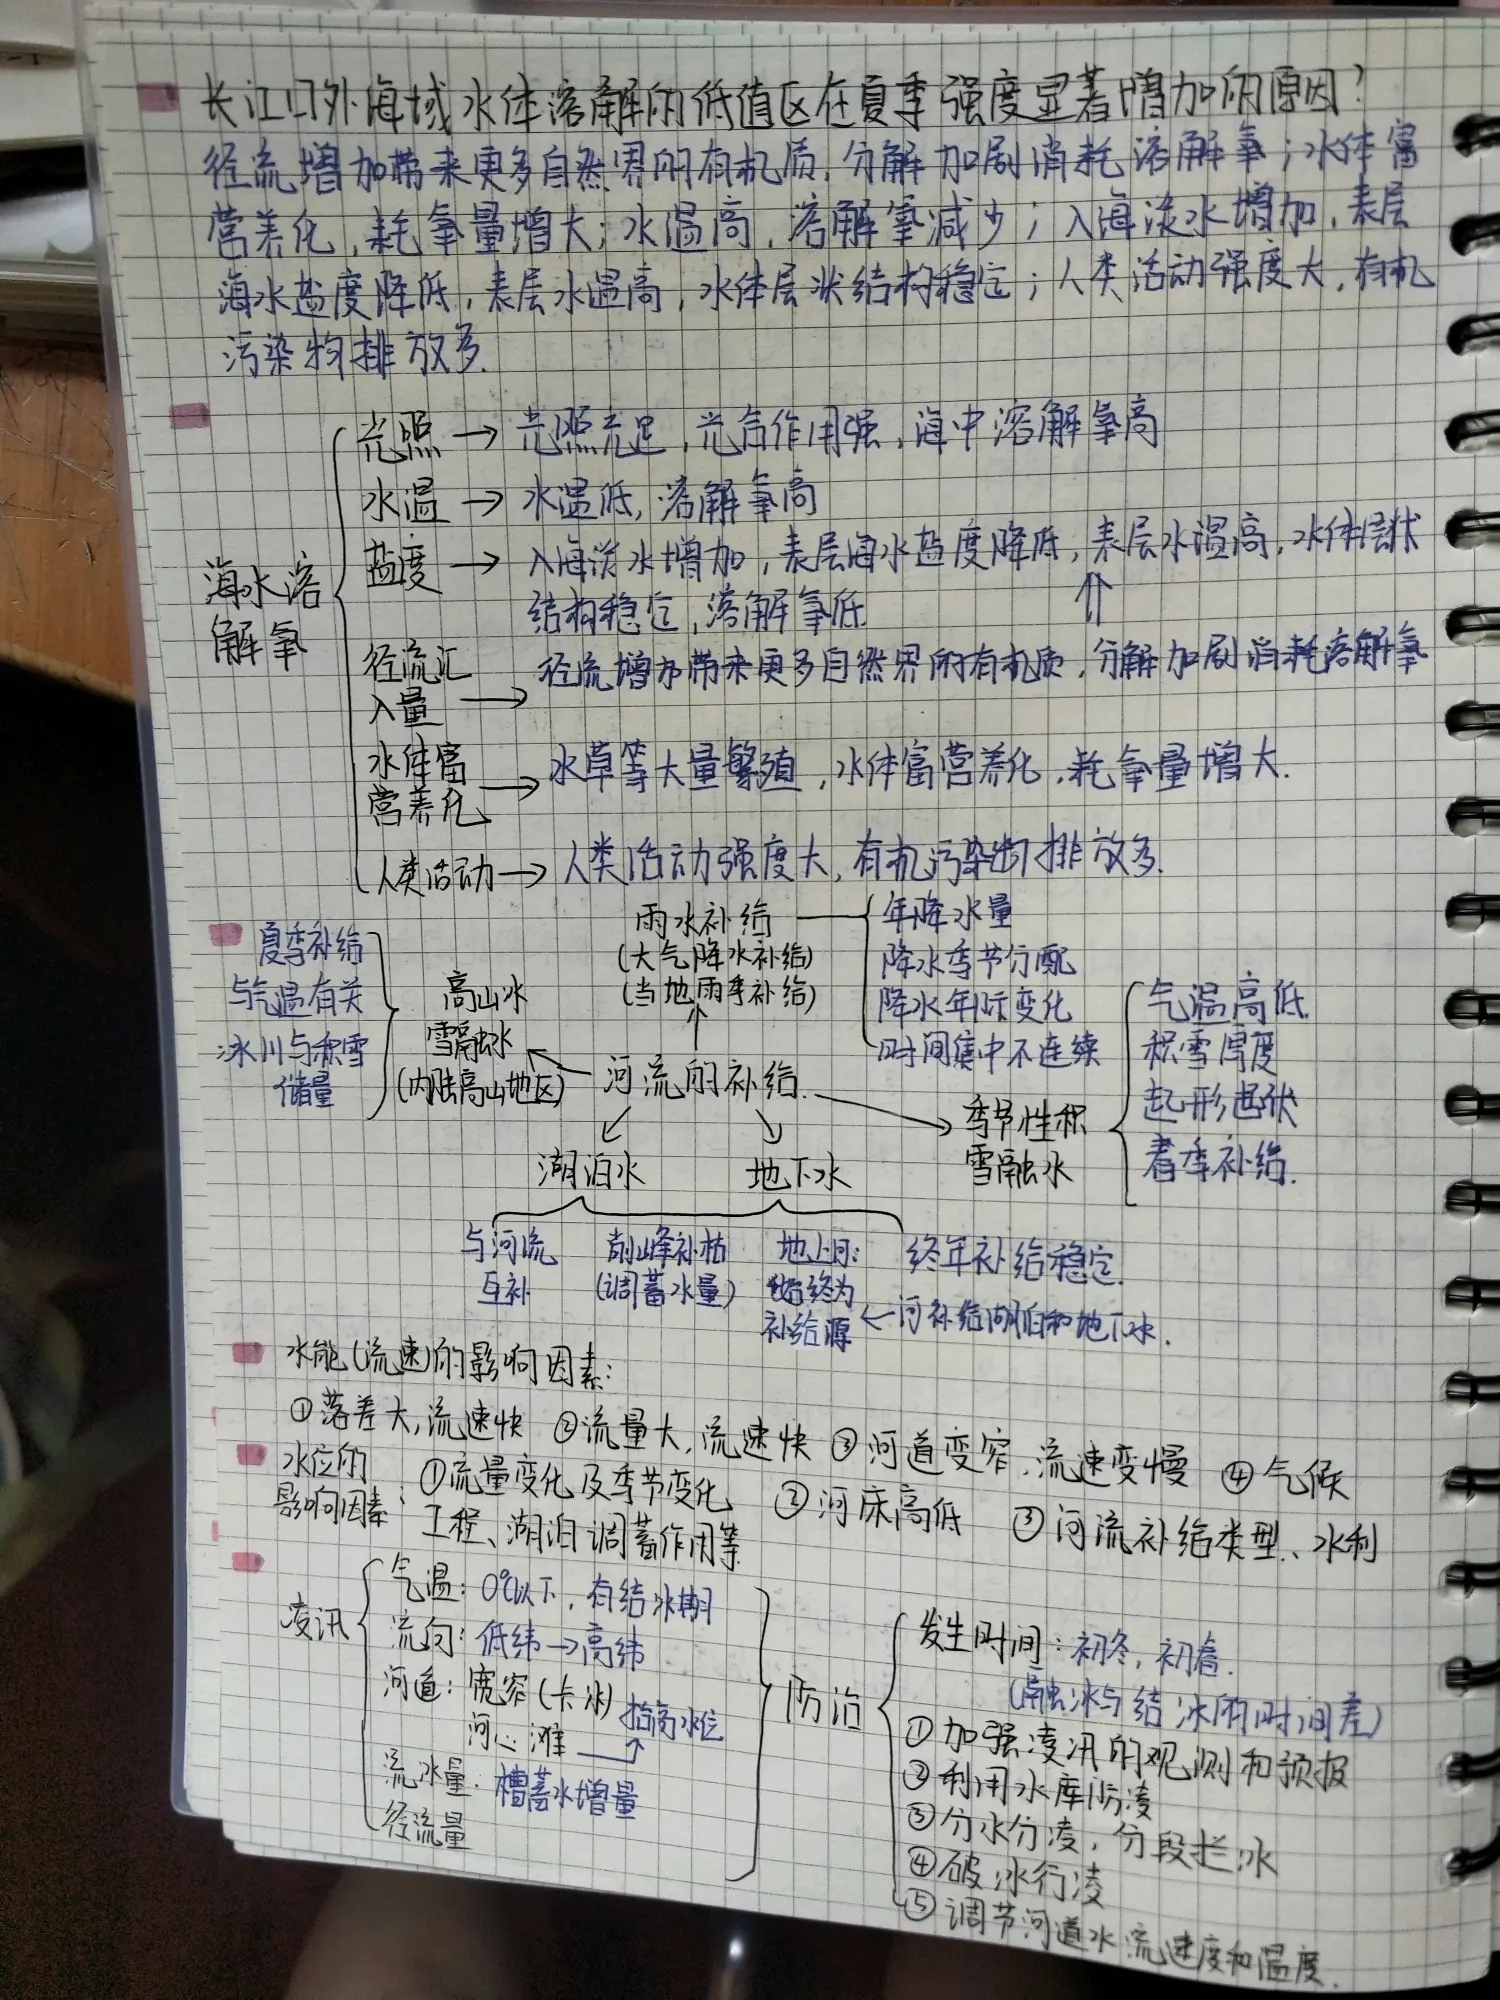 长江口外海域水体溶解的低值区在夏季强度显著增加的原因？
径流增加带来更多自然界的有机质，分解加剧消耗溶解氧；水体富
营养化，耗氧量增大；水温高，溶解氧减少；入海淡水增加，表层
海水盐度降低，表层水温高，水体层状结构稳定；人类活动强度大，有机
污染物排放多.
海水溶
解氧
光照→光照充足，光合作用强，海中溶解氧高
水温→水温低，溶解氧高
盐度→入海淡水增加，表层海水盐度降低，表层水温高，水体层状
结构稳定，溶解氧低
径流汇
入量→径流增加带来更多自然界的有机质，分解加剧消耗溶解氧
水体富
营养化→水草等大量繁殖，水体富营养化，耗氧量增大.
人类活动→人类活动强度大，有机污染物排放多.
河流的补给.
雨水补给
(大气降水补给)
(当地雨季补给)
年降水量
降水季节分配
降水年际变化
时间集中不连续
高山冰
雪融水
(内陆高山地区)
夏季补给
与气温有关
冰川与积雪
储量
季节性积
雪融水
气温高低
积雪厚度
起形起伏
春季补给.
湖泊水
地下水
与河流
互补
削峰补枯
(调蓄水量)
地上河:
始终为
补给源←河补给湖泊和地下水.
终年补给稳定.
水能(流速)的影响因素:
①落差大,流速快 ②流量大,流速快 ③河道变窄,流速变慢 ④气候
水位的
影响因素:
①流量变化及季节变化 ②河床高低 ③河流补给类型、水利
工程、湖泊调蓄作用等
凌汛
气温：0℃以下，有结冰期
流向：低纬→高纬
河道：宽窄(卡冰)
河心滩→抬高水位
流水量:槽蓄水增量
径流量
防治
发生时间：初冬，初春.
(融冰与结冰的时间差)
①加强凌汛的观测和预报
②利用水库防凌
③分水分凌，分段拦冰
④破冰行凌
⑤调节河道水流速度和温度.